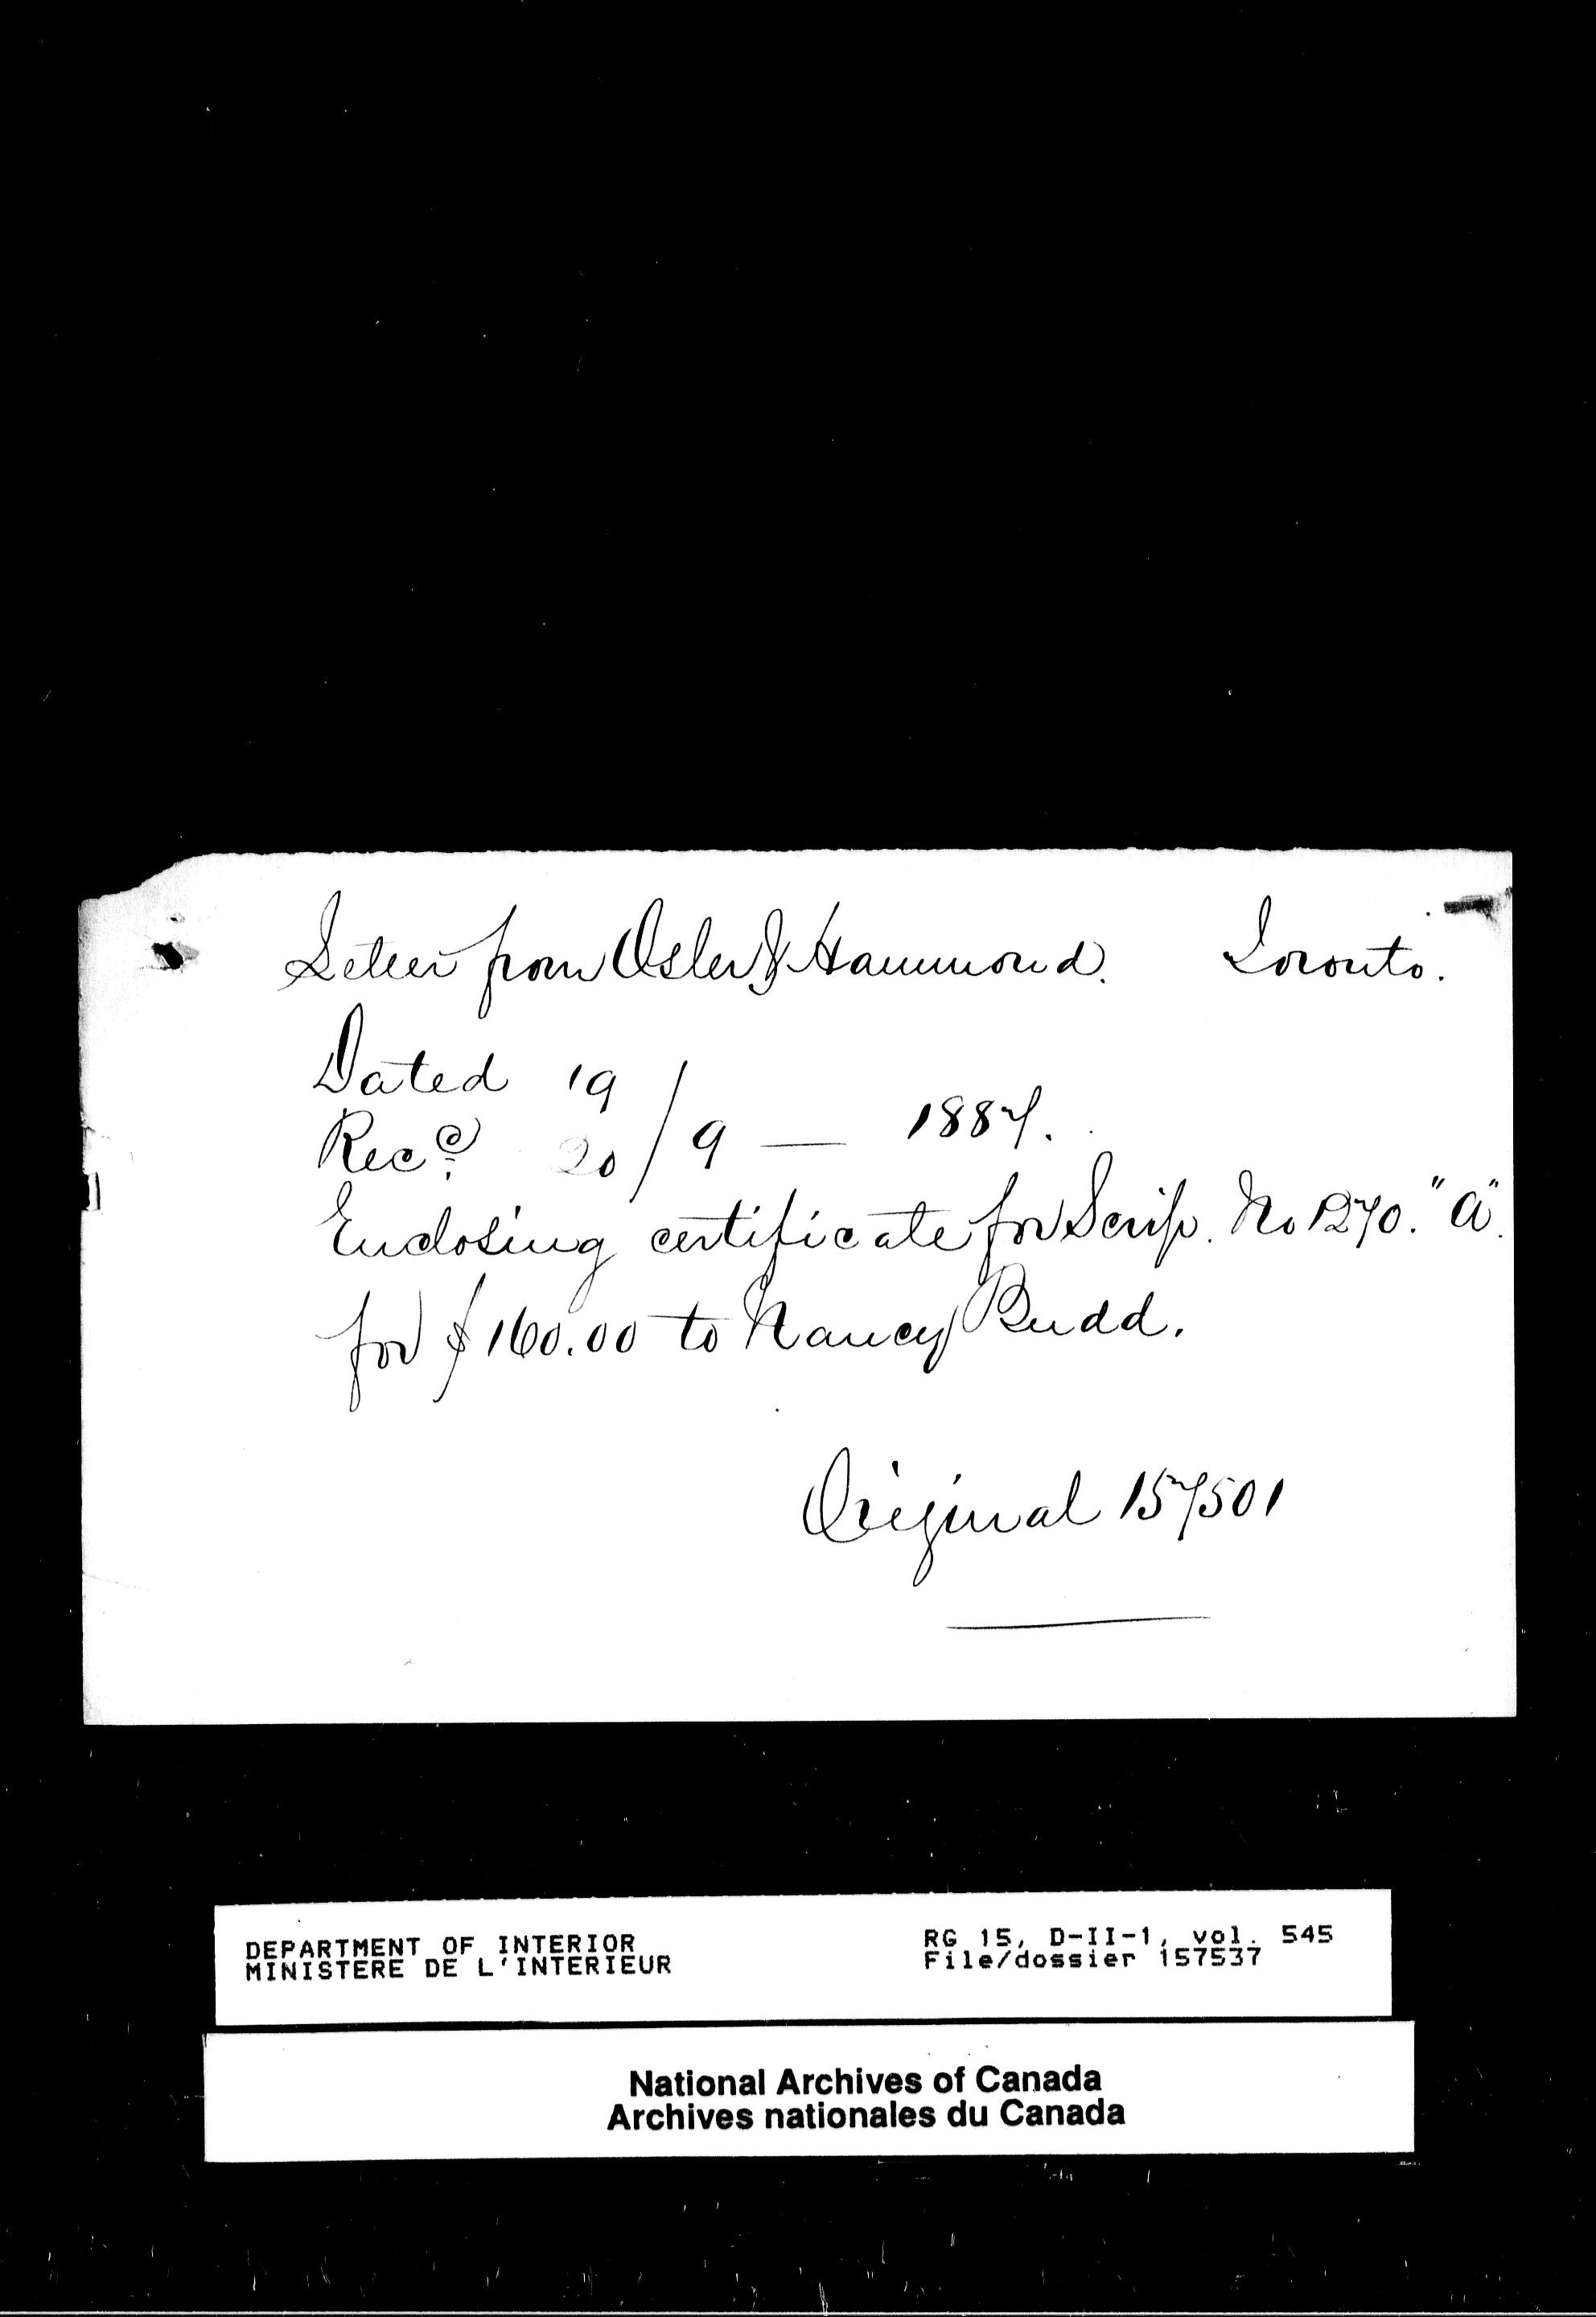 Letter from Osler & Hammond. Toronto.
Dated 19
Recd. 20 / 9 — 1887.
Enclosing certificate for Scrip. No 1270. "A".
for $160.00 to Nancy Budd.
Original 157501
DEPARTMENT OF INTERIOR
MINISTERE DE L'INTERIEUR
RG 15, D-II-1, vol. 545
File/dossier 157537
National Archives of Canada
Archives nationales du Canada